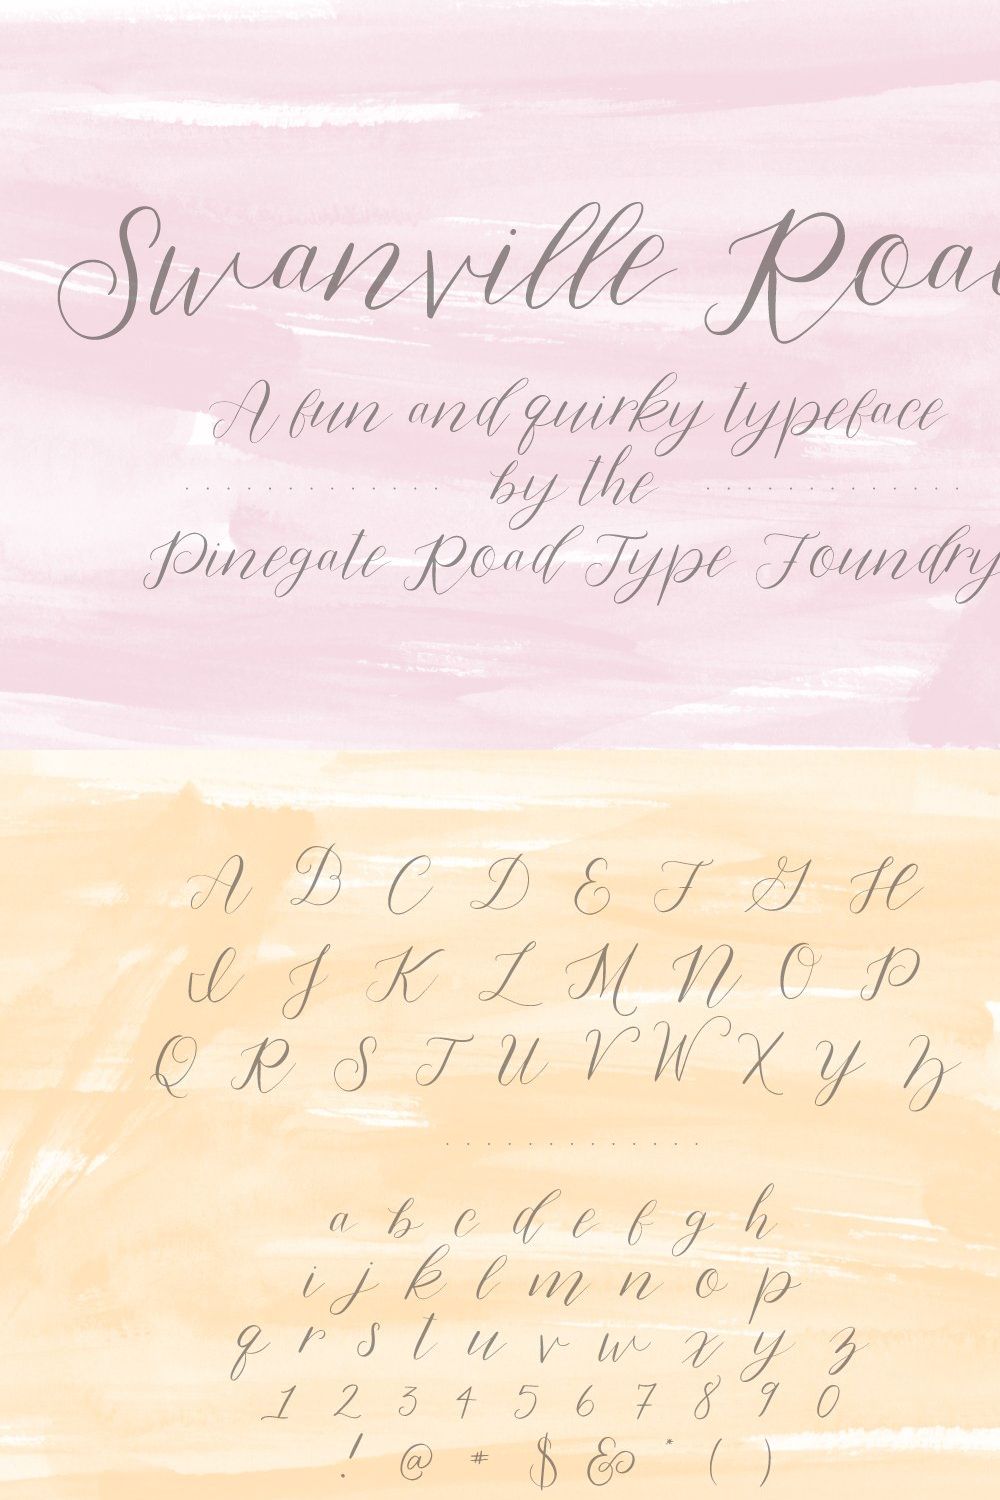 Swanville Roa
A fun and quirky typeface
by the
Pinegate Road Type Foundry
A B C D E F G H
I J K L M N O P
Q R S T U V W X Y Z
a b c d e f g h
i j k l m n o p
q r s t u v w x y z
1 2 3 4 5 6 7 8 9 0
! @ # $ & * ( )